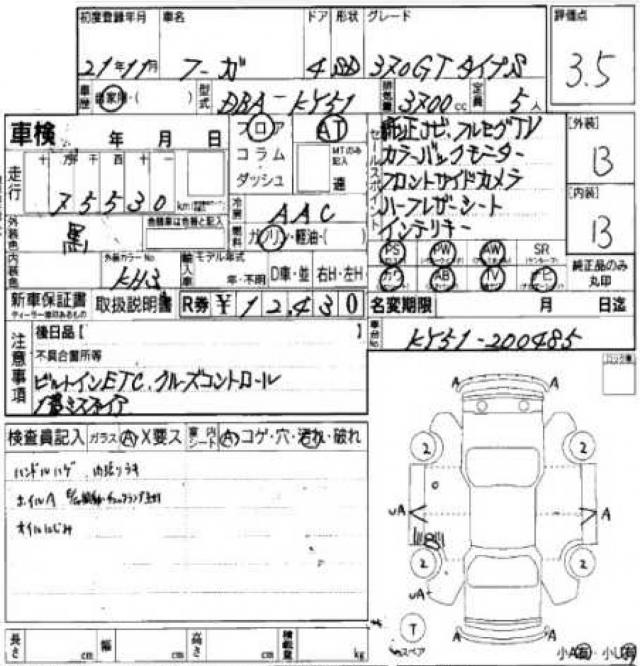 初度登録年月 車名 ドア 形状 グレード 評価点
21年11月 フーガ 4 SD 370GT タイプS 3.5
車歴 自家用・( ) 型式 DBA-KY51 排気量 3700cc 定員 5人
車検 年 月 日 フロア AT セールスポイント 純正ナビ、フルセグTV [外装]
コラム MTのみ記入 カラーバックモニター B
走行 十万千百十一 ダッシュ 速 フロントサイドカメラ
75530 km 冷房 AAC ハーフレザーシート [内装]
外装色 黒 色替車は色替と記入 燃料 ガソリン・軽油・( ) インテリキー B
内装色 外装カラーNo KH3 輸入車 モデル年式 年・不明 D車・並 右H・左H PS PW AW SR
カワ AB TV ナビ 純正品のみ丸印
新車保証書 取扱説明書 R券 ¥12,430 名変期限 月 日迄
ディーラー捺印あるもの
注意事項 後日品[ 車台No. KY51-200485
不具合箇所等
ビルトインETC、クルーズコントロール
1番ミスファイア
検査員記入 ガラス A X要ス 室内シート A コゲ・穴・汚れ・破れ
ハンドルハゲ 内張りキズ
ホイルA
オイルにじみ
A A
2 2
UA A
2 2
UA
T
スペア A A
長さ cm 幅 cm 高さ cm 積載量 kg 小A有 小U有